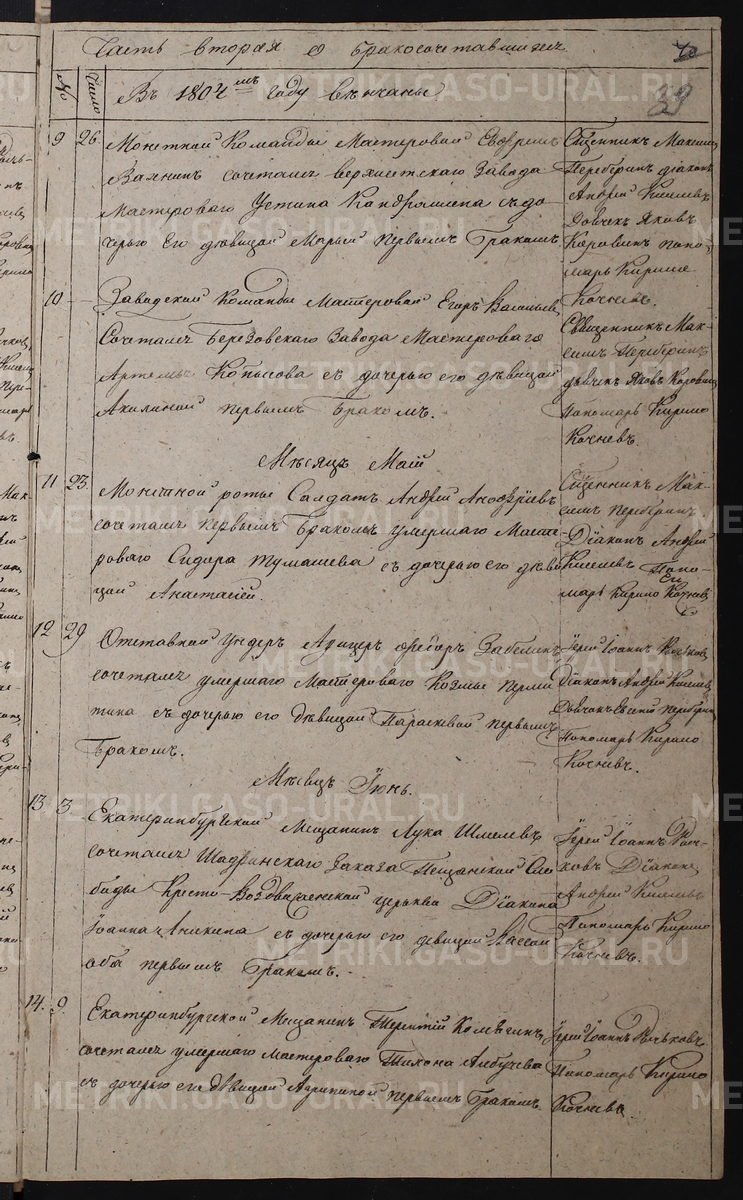 Часть вторая о бракосочетавшихся
№ Число Въ 1804мъ году венчаны
39
9 26 Монетной Команды Мастеровой
сочетался верхисетскаго Завода
Мастероваго Устина съ до
черью Его девицей Марьей первымъ Бракомъ
Священникъ Максимъ
диаконъ
Андрей Киселевъ
Дьячекъ Яковъ
Коровинъ поно-
марь Кирило
Кочневъ.
10 Заводской Команды Мастеровой Егоръ Васильевъ
Сочетался Березовскаго Завода Мастероваго
Артемья Копысова съ дочерью его девицей
Акилиной первымъ Бракомъ.
Священникъ Мак-
симъ
дьячекъ Яковъ Коровинъ
Пономарь Кирило
Кочневъ.
Месяцъ Маий
11 23. Монетной роты Салдатъ Андрей
сочетался первымъ Бракомъ умершаго Масте-
роваго Сидора Тумашева съ дочерью его деви-
цей Анастасией.
Священникъ Мак-
симъ
Диаконъ Андрей
Киселевъ Поно-
марь Кирило Кочневъ
12 29 Отставной ундеръ Афицеръ Федоръ Забелинъ
сочетался умершаго Мастероваго Козмы Перми
тина съ дочерью его девицей Параскевой первымъ
Бракомъ.
Иерей Иоаннъ
Диаконъ Андрей Киселевъ
Пономарь Кирило
Кочневъ.
Месяцъ Июнь.
13. 3. Екатеринбургской Мещанинъ Лука Шмелевъ
сочетался Шадринскаго Заказа Пещанской Сло
боды Кресто-Воздвиженской церкви Диакона
Иоанна Аникина съ дочерью его девицей Вассой
оба первымъ Бракомъ.
Иерей Иоаннъ
Диаконъ
Андрей Киселевъ
Пономарь Кирило
Кочневъ.
14. 9. Екатеринбургской Мещанинъ Терентий
сочетался умершаго мастероваго Тихона
съ дочерью его девицей Агрипиной первымъ Бракомъ
Иерей Иоаннъ
Пономарь Кирило
Кочневъ.
METRIKI.GASO-URAL.RU